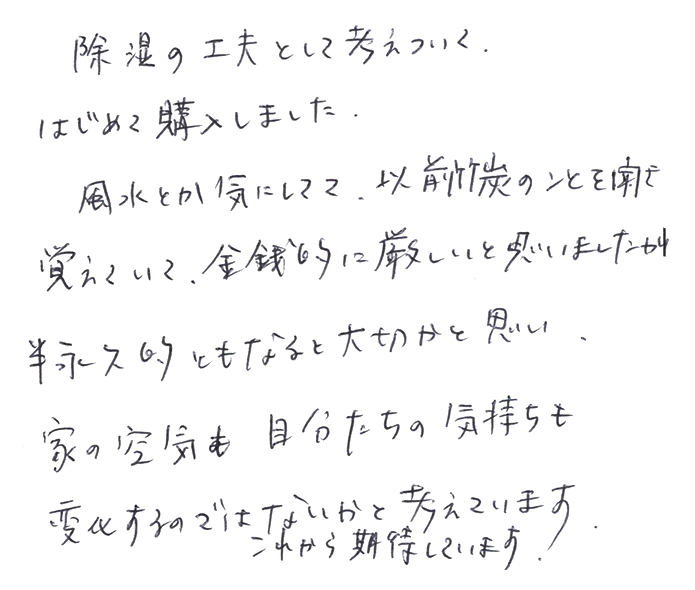 除湿の工夫として考えついて.
はじめて購入しました.
風水とか気にしてて、以前竹炭のことを聞き
覚えていて、金銭的に厳しいと思いましたが
半永久的ともなると大切かと思い、
家の空気も 自分たちの気持ちも
変化するのではないかと考えています.
これから期待しています.